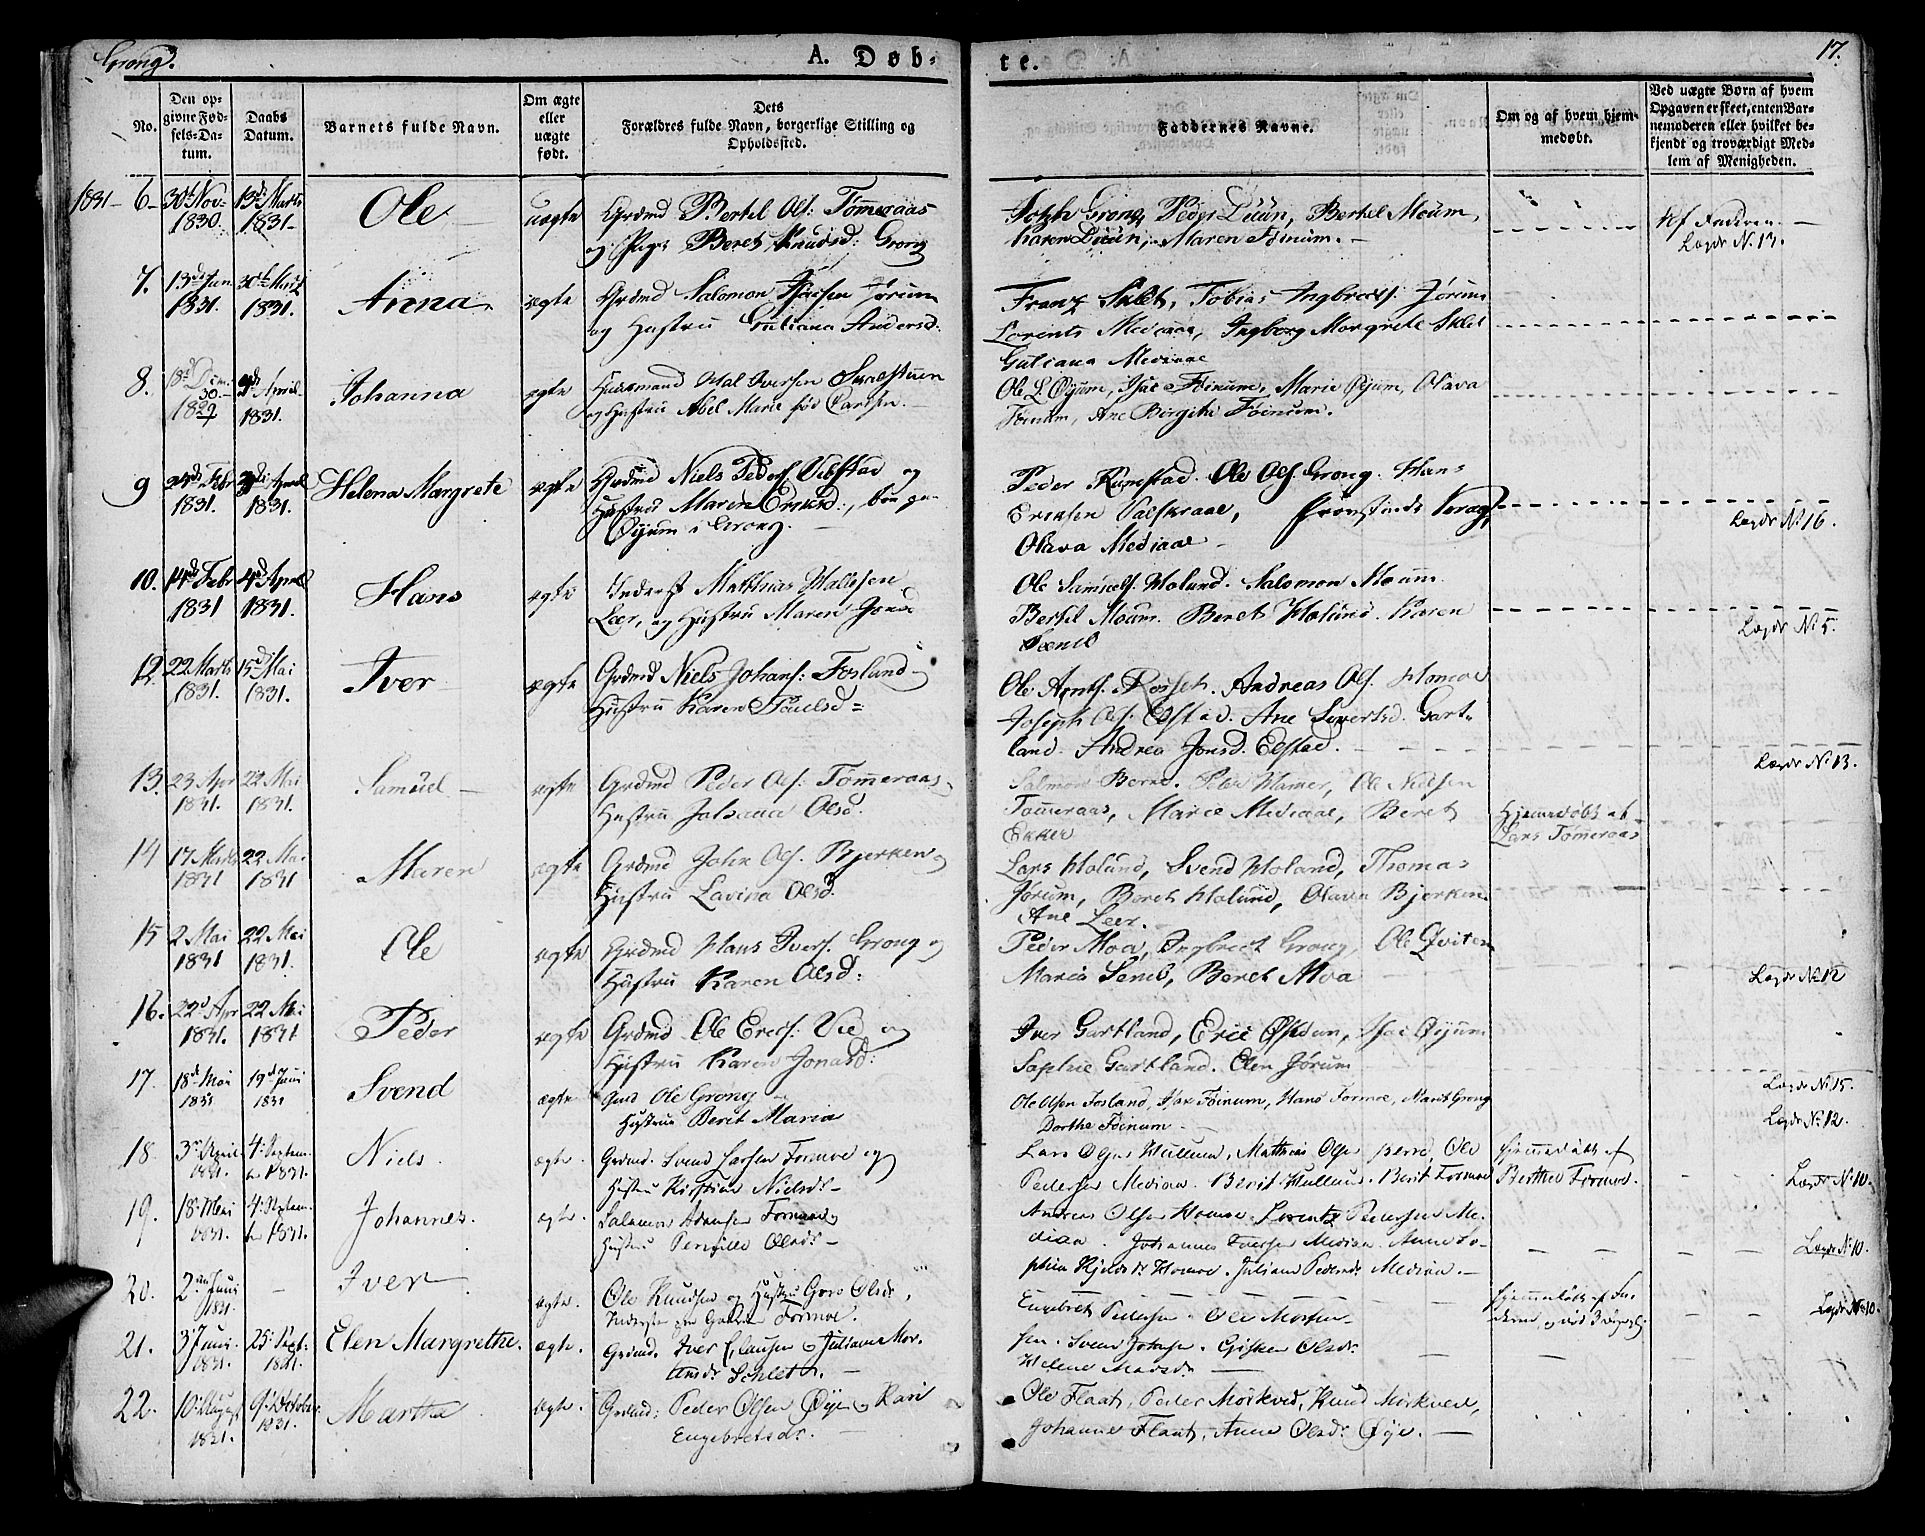 Grong.
A. Døb-
te.
17.
No.
Den op-
givne Fød-
sels-Da-
tum.
Daabs
Datum.
Barnets fulde Navn.
Om ægte
eller
uægte
født.
Dets
Forældres fulde Navn, borgerlige Stilling og
Opholdssted.
Faddernes Navne.
Om og af hvem hjem-
medøbt.
Ved uægte Børn af hvem
Opgaven er skeet, enten Bar-
nemoderen eller hvilket be-
kjendt og troværdigt Med-
lem af Menigheden.
1831 - 6 -
30te Nov
1830.
13de Marts
1831 -
Ole -
uægte
Grdmd Bertel Ols: Tømeraas
og Pige Beret Knudsd: Grong
Grong, Peder Duun, Bertel Moum,
Karen Duun, Maren Føinum. -
af Faderen. -
Lægdr N. 13.
7.
13de Jan
1831.
1831.
Anna.
ægte
Grdmd Salomon Jørum
og Hustru Guliana Andersd:
Franz Sklet, Tobias Ingbrects. Jørum
Lorents Mediaae, Ingborg Morgrete Sklet
Guliana Mediaae
8.
18de
30.
1829
April
1831.
Johanna
ægte
Huusmand Hal Iversen
og Hustru Abel Marie fød Carlsen.
Ole L. Øyum, Isac Føinum, Marie Øyum, Olava
Føinum, Ane Birgithe Føinum.
9
24de Febr
1831.
April
1831.
Helena Margrete
ægte
Grdmd Niels Peders Vibstad og
Hustru Maren Ericksd:, boe paa
Øyum i Grong. -
Peder Rumstad. Ole Ols. Grong. Hans
Eriksen
Olava Mediaae -
Lægdr N. 16.
10.
14de Febr
1831
4de April
1831.
Hans
ægte
Inderst Matthias Hallssen
Leer, og Hustru Maren
Ole Samuels. Holund. Salomon Moum.
Bertel Moum. Beret Holund. Karen
Sæmb
Lægdr N. 5.
12.
22 Marts
1831.
15de Mai
1831.
Iver -
ægte
Grdmd Niels Johans: Fosland
Hustru Karen Poulsd =
Ole Arnts. Rosset. Andreas Ols. Homoe
Joseph Ols. Elstad. Ane Siversd. Gart-
land. Andrea Jonsd. Elstad.
Lægdr N. 13.
13.
23 Apr
1831.
22 Mai
1831.
Samuel -
ægte
Grdmd Peder Ols: Tømeraas
Hustru Johana Olsd.
Salmon Berne. Peder Hamer, Ole Nielsen
Tømeraas, Marie Mediaae, Beret
Ekker
Hjemmedøbt af
Lars Tømeraas
14
17 Marts
1831
22 Mai
1831
Maren
ægte
Grdmd John Ols. Bjerken og
Hustru Lavina Olsd.
Lars Holund, Svend Holand, Thomas
Jørum, Beret Holund, Olava Bjerken
Ane Leer.
15
2 Mai
1831
22 Mai
1831.
Ole
ægte
Grdmd Hans Ivers. Grong og
Hustru Karen Olsd:
Peder Moa, Ingbrect Grong, Ole Qviten
Maria Semb, Beret Moa
Lægdr N. 12
16.
22d Apr
1831.
22 Mai
1831
Peder
ægte
Grdmd Ole Erics: Vie og
Hustru Karen Jonasd:
Iver Gartland, Eric, Isac Øyum
Sophie Gartland. Elen Jørum
Lægdr N. 15.
17.
18d Mai
1831
19d Juni
1831
Svend
ægte
Ole Grong -
Hustrue Berit Maria
Ole Olsen Fosland, Isax Føinum, Hans Formoe, Marit Grong
Dorthe Føinum. -
Lægdr N. 12.
18.
3. April
1831.
4. Septem-
ber 1831.
Niels.
ægte.
Grdmd. Svend Larsen Formoe og
Hustru Kirstine Nielsdr -
Lars Hullun, Matthias Olsen, Ole
Pedersen Mediaa. Berit Hullun. Berit Formoe
Hjemmedøbt af
Berthe Formoe.
Lægdr N. 10.
19.
18. Mai
1831.
4. Septem-
ber 1831.
Johannes.
ægte.
Salamon Formoe og
Hustru Pernille Olsdr -
Andreas Olsen Homoe. Lorentz Pedersen Me-
diaa. Johannes Iversen Mediaa. Anne So-
phia Hjelsdr Homoe. Juliana Pedersdr Mediaa. -
Lægdr N. 10.
20.
2den Juni
1831.
-
Iver
ægte.
Ole Knudsen og Hustru Goro Olsdr,
Inderste paa Formoe.
Engebret Pedersen. Ole Morten-
Hjemmedøbt af Fa-
Lægdr N. 10.
21.
3. Juni.
1831.
25. Sept:
1831.
Elen Margrethe.
ægte.
Grdmd. Iver Clausen og Juliana Mor-
tensdr Schlett. -
sen. Svend Johnsen. Gisken Olsdr
Helene Madsdr
22.
10. August
1831.
9. October
1831.
Martha
ægte.
Grdmd: Peder Olsen Øye og Kari
Engebretsdr. -
Ole Flaat, Peder Mørkved, Knud Mørkved,
Johanne Flaat, Anne Olsdr Øye. -